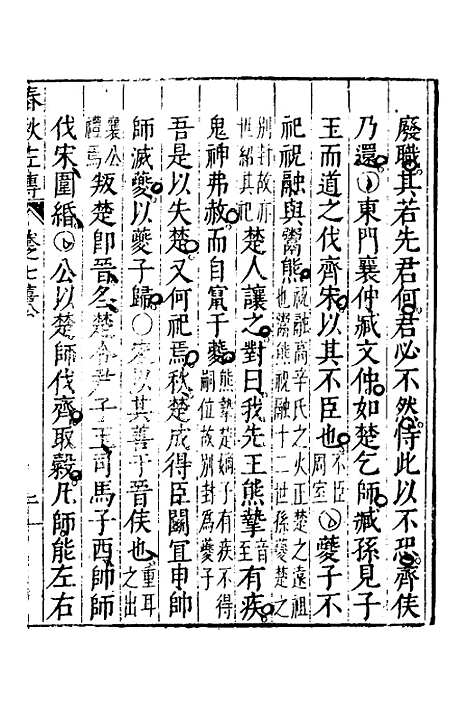 廢職其若先君何君必不然恃此以不恐齊侯
乃還○東門襄仲臧文仲如楚乞師臧孫見子
玉而道之伐齊宋以其不臣也不臣周室○夔子不
祀祝融與鬻熊祝融高辛氏之火正楚之遠祖也鬻熊祝融十二世孫夔楚之
別封故亦世紹其祀楚人讓之對曰我先王熊摯音至有疾
鬼神弗赦而自竄于夔熊摯楚嫡子有疾不得嗣位故別封爲夔子
吾是以失楚又何祀焉秋楚成得臣鬭宜申帥
師滅夔以夔子歸○宋以其善于晉侯也重耳之出
襄公禮焉叛楚卽晉冬楚令尹子玉司馬子西帥師
伐宋圍緡○公以楚師伐齊取穀凡師能左右
春秋左傳 卷之七僖公